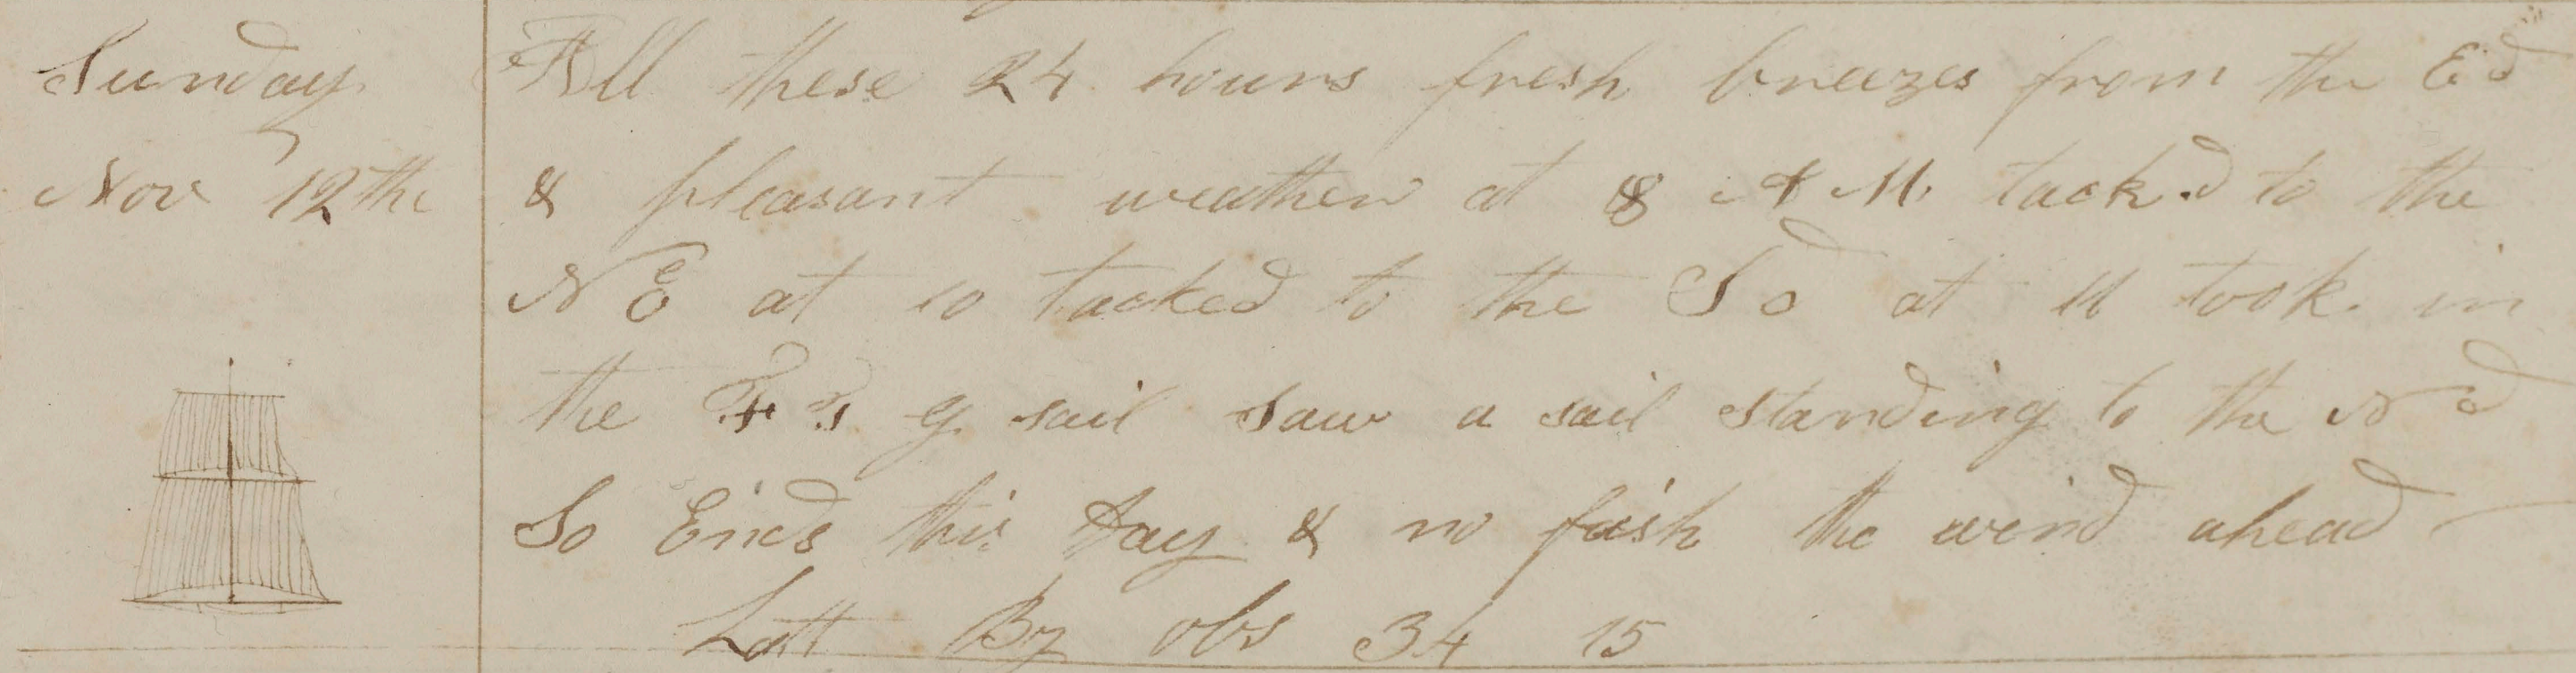 Sunday
Nov 12th
All these 24 hours fresh breezes from the Ed
& pleasant weather at 8 A M. tack.d to the
N E at 10 tacked to the Sd at 11 took in
the F T g sail saw a sail standing to the N d
So Ends this day & no fish the wind ahead
Latt By obs 34 15